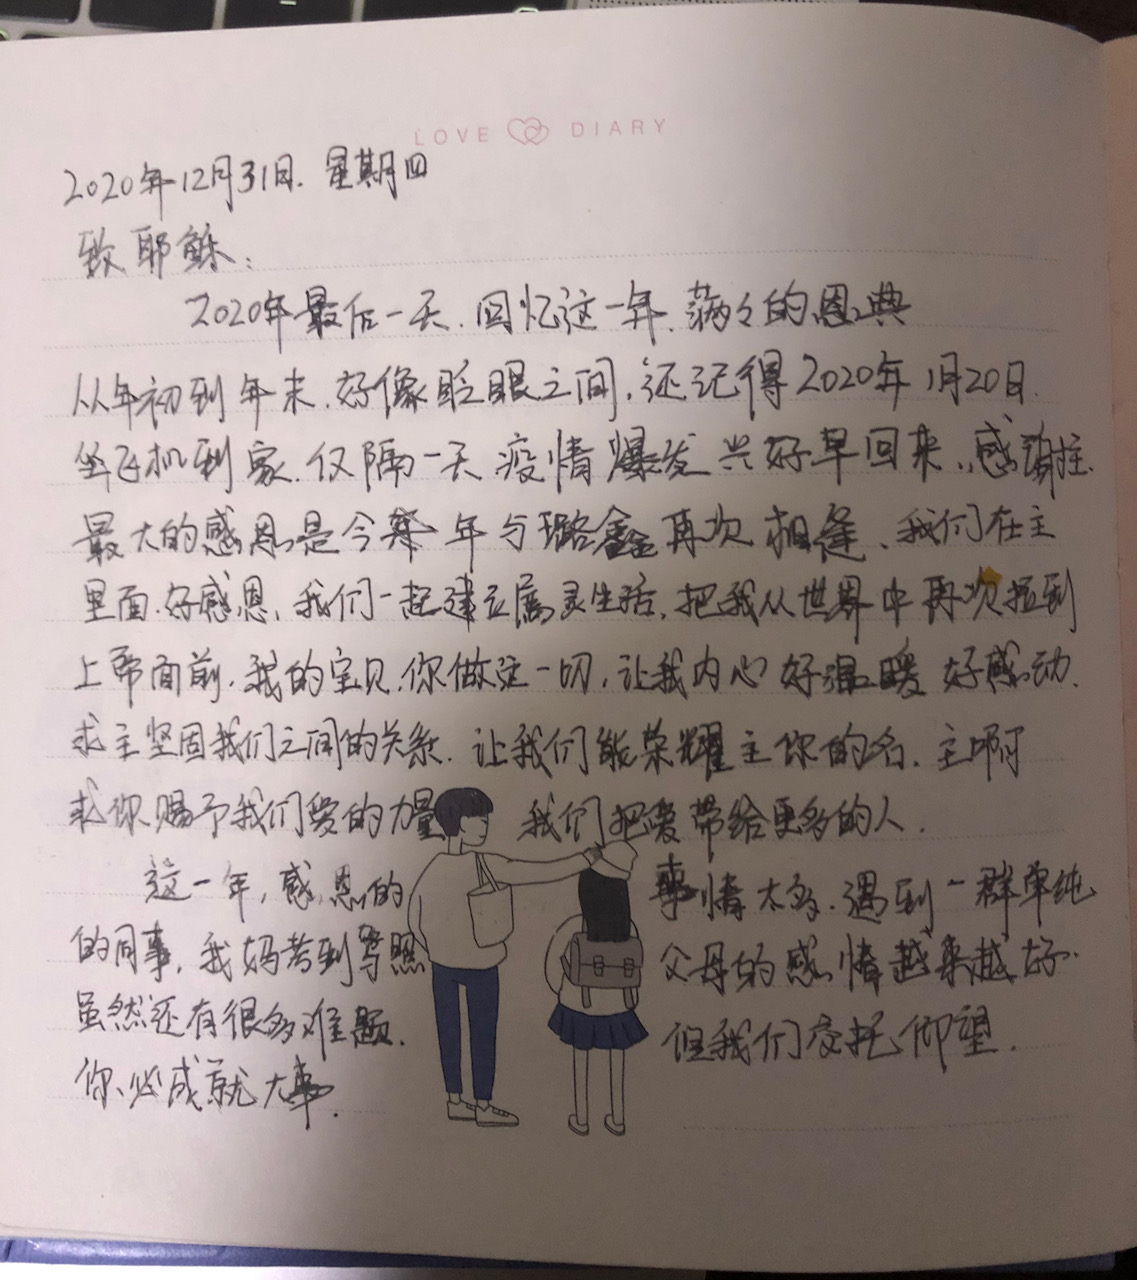 LOVE DIARY
2020年12月31日. 星期四
致耶稣:
2020年最后一天.回忆这一年.满々的恩典
从年初到年末.好像眨眼之间,还记得2020年1月20日.
坐飞机到家.仅隔一天疫情爆发 兴好早回来.感谢主.
最大的感恩是今年与璐鑫再次相逢、我们在主
里面.好感恩,我们一起建立属灵生活,把我从世界中再次拉到
上帝面前.我的宝贝.你做这一切,让我内心好温暖好感动.
求主坚固我们之间的关系.让我们能荣耀主你的名.主啊
求你赐予我们爱的力量 我们把爱带给更多的人.
这一年,感恩的 事情太多.遇到一群单纯
的同事,我妈考到驾照 父母的感情越来越好.
虽然还有很多难题. 但我们交托仰望.
你必成就大事.